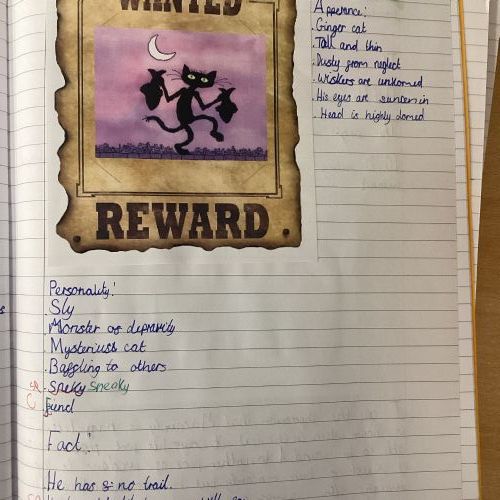 WANTED
Apperance:
Ginger cat
. Tall and thin
. Dusty from neglect
. Wiskers are unkomed
. His eyes are sunken in
. Head is highly domed
REWARD
Personality:
. Sly
. Monster of depravity
. Mysteriuss cat
. Baffling to others
. Speky sneaky
Fiend
Fact:
He has no trail.